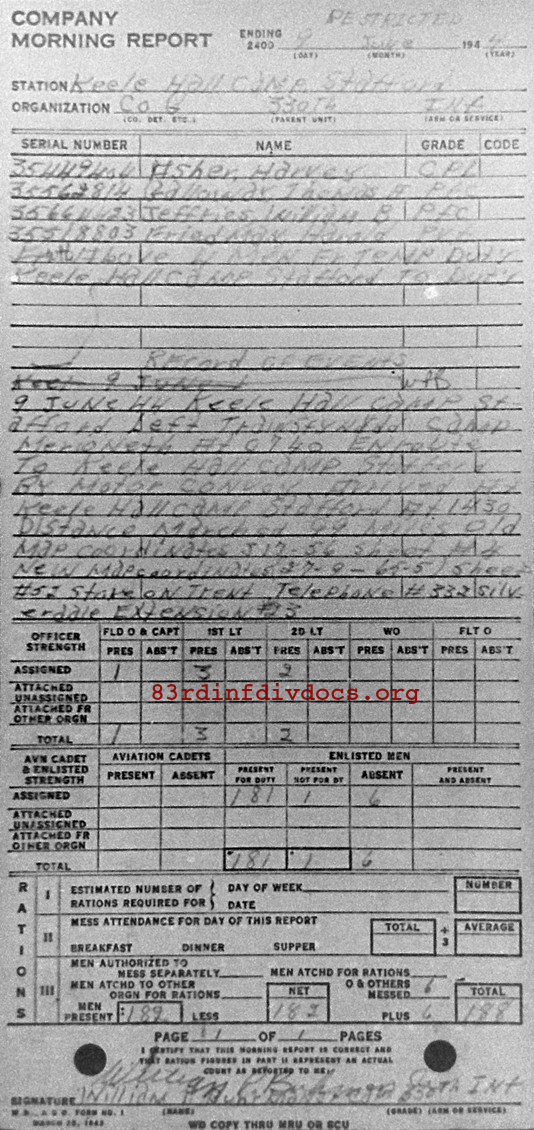 COMPANY
MORNING REPORT
RESTRICTED
ENDING 2400 9 June 1944
(DAY) (MONTH) (YEAR)
STATION Keele Hall Camp Stafford
ORGANIZATION Co G 330th INF
(CO. DET. ETC.) (PARENT UNIT) (ARM OR SERVICE)
SERIAL NUMBER NAME GRADE CODE
Asher, Harvey CPL
35562814 Thomas PFC
Jefferies, William B PFC
35518803 Harold Pvt
above 4 Men Fr Temp Duty
Keele Hall Camp Stafford To Duty
Record of Events
9 June
9 June 44 Keele Hall Camp St-
afford Left Camp
At 0740 Enroute
To Keele Hall Camp Stafford
By Motor Convoy Arrived At
Keele Hall Camp Stafford At 1430
Distance Marched 99 Miles Old
Map coordinates 517-56 Sheet #4
New Map coordinates Sheet
#52 Stoke on Trent Telephone #332 Silv-
erdale Extension #23
OFFICER STRENGTH FLD O & CAPT 1ST LT 2D LT WO FLT O
PRES ABS'T PRES ABS'T PRES ABS'T PRES ABS'T PRES ABS'T
ASSIGNED 1 3 2
ATTACHED UNASSIGNED
83rdinfdivdocs.org
ATTACHED FR OTHER ORGN
TOTAL 1 3 2
AVN CADET & ENLISTED STRENGTH AVIATION CADETS ENLISTED MEN
PRESENT ABSENT PRESENT FOR DUTY PRESENT NOT FOR DY ABSENT PRESENT AND ABSENT
ASSIGNED 181 1 6
ATTACHED UNASSIGNED
ATTACHED FR OTHER ORGN
TOTAL 181 1 6
RATIONS
I ESTIMATED NUMBER OF RATIONS REQUIRED FOR DAY OF WEEK DATE NUMBER
II MESS ATTENDANCE FOR DAY OF THIS REPORT TOTAL ÷ 3 AVERAGE
BREAKFAST DINNER SUPPER
III MEN AUTHORIZED TO MESS SEPARATELY MEN ATCHD FOR RATIONS
MEN ATCHD TO OTHER ORGN FOR RATIONS NET O & OTHERS MESSED 6 TOTAL
MEN PRESENT 182 LESS 182 PLUS 6 188
PAGE 1 OF 1 PAGES
I CERTIFY THAT THIS MORNING REPORT IS CORRECT AND
THAT RATION FIGURES IN PART II REPRESENT AN ACTUAL
COUNT AS REPORTED TO ME:
SIGNATURE William 330th Inf
W.D., A.G.O. FORM NO. 1 (NAME) (GRADE) (ARM OR SERVICE)
MARCH 25, 1943 WD COPY THRU MRU OR SCU